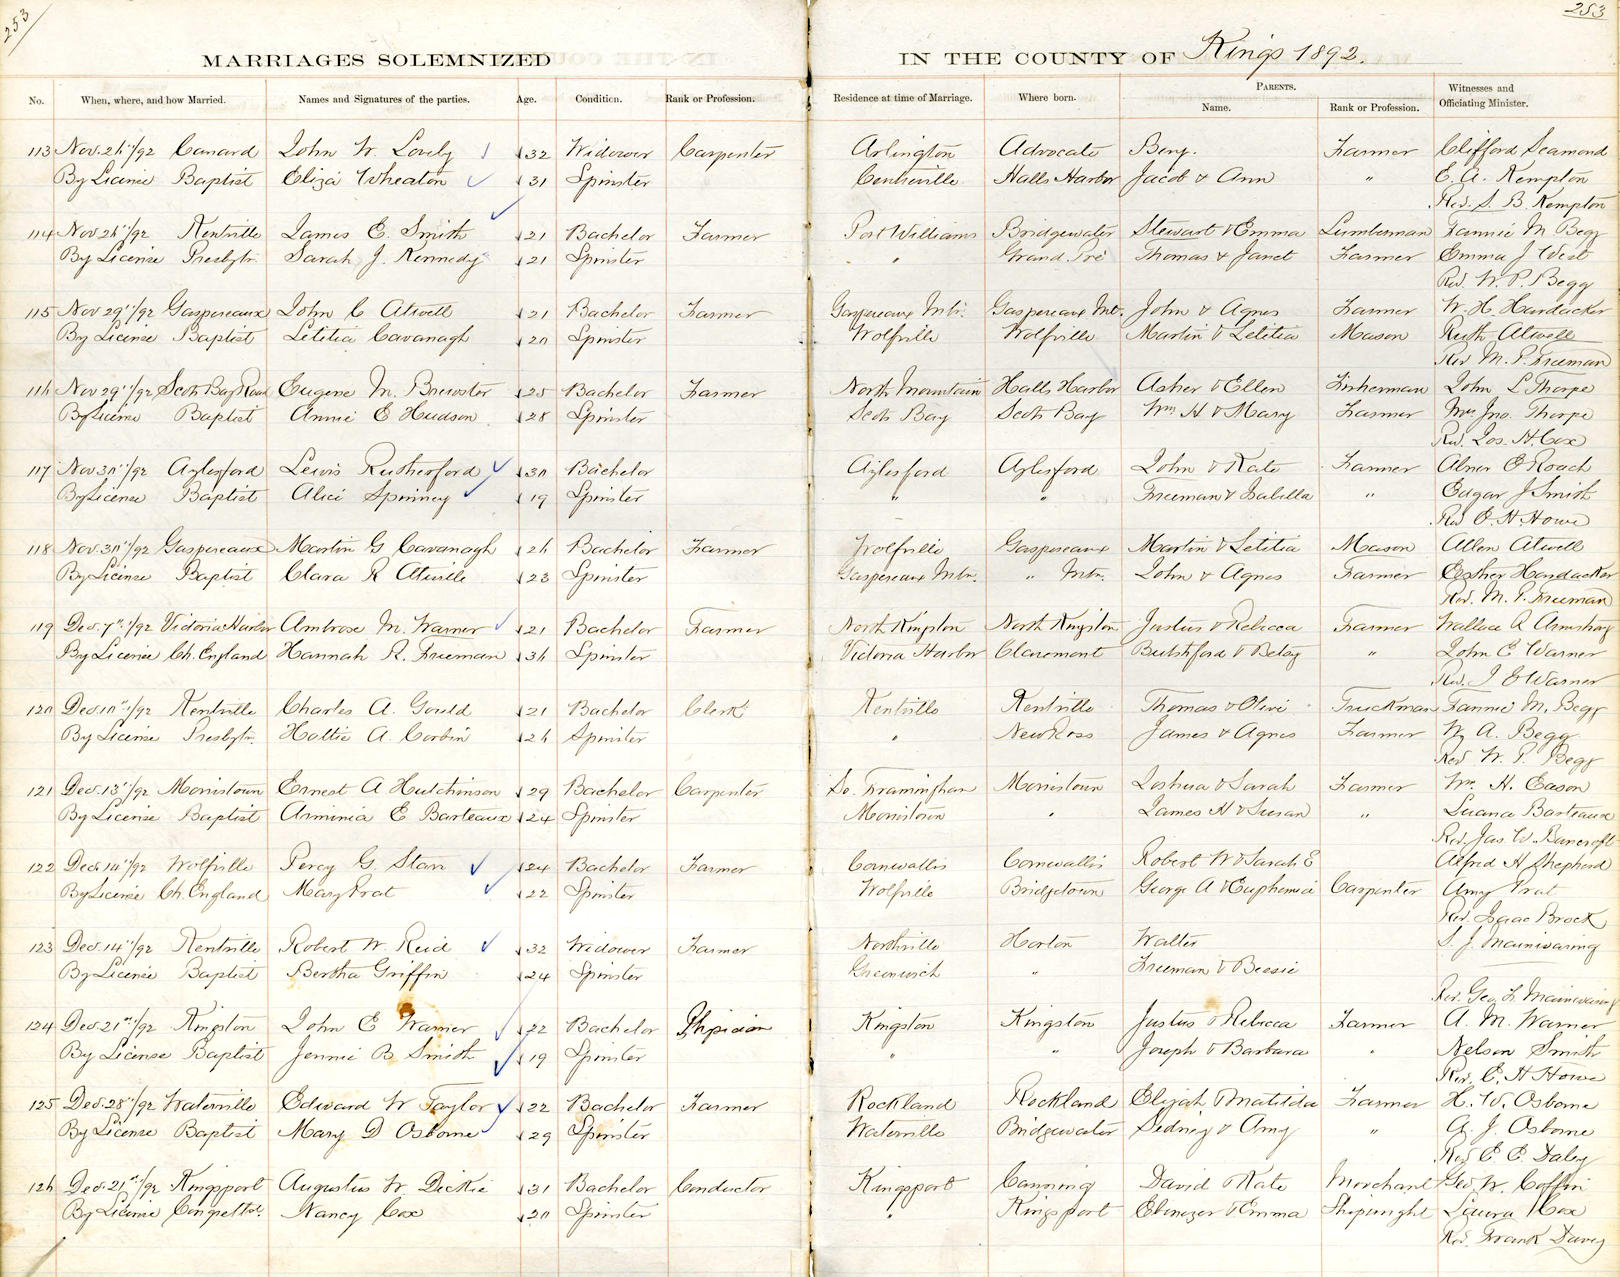 253
253
MARRIAGES SOLEMNIZED IN THE COUNTY OF Kings 1892.
No. When, where, and how Married. Names and Signatures of the parties. Age. Condition. Rank or Profession. Residence at time of Marriage. Where born. PARENTS. Name. Rank or Profession. Witnesses and Officiating Minister.
113 Nov. 26"/92 Canard John W. Lovely 32 Widower Carpenter Arlington Advocate Benj. Farmer Clifford Seamond
By License Baptist Eliza Wheaton 31 Spinster Centreville Halls Harbor Jacob & Ann " E. A. Kempton
Rev. S. B. Kempton
114 Nov 26"/92 Kentville James E. Smith 21 Bachelor Farmer Port Williams Bridgewater Stewart & Emma Lumberman Fannie M Begg
By License Presbytn. Sarah J. Kennedy 21 Spinster " Grand Pré Thomas & Janet Farmer Emma J West
Rev. W. P. Begg
115 Nov 29"/92 Gaspereaux John C Atwell 21 Bachelor Farmer Gaspereaux Mtn. Gaspereaux Mt. John & Agnes Farmer W. H. Hardacker
By License Baptist Letitia Cavanagh 20 Spinster Wolfville Wolfville Martin & Letitia Mason Ruth Atwell
Rev M. P. Freeman
116 Nov 29"/92 Scots Bay Road Eugene M. Brewster 25 Bachelor Farmer North Mountain Halls Harbor Asher & Ellen Fisherman John L Thorpe
By License Baptist Annie E Hudson 28 Spinster Scots Bay Scots Bay Wm H & Mary Farmer Mrs Jno. Thorpe
Rev. Jos. H. Cox
117 Nov 30"/92 Aylesford Lewis Rutherford 30 Bachelor Aylesford Aylesford John & Kate Farmer Abner E Roach
By License Baptist Alice Spinney 19 Spinster " " Freeman & Isabella " Edgar J Smith
Rev E. H. Howe
118 Nov. 30"/92 Gaspereaux Martin G Cavanagh 26 Bachelor Farmer Wolfville Gaspereaux Martin & Letitia Mason Allen Atwell
By License Baptist Clara R Atwille 23 Spinster Gaspereaux Mtn. " Mtn. John & Agnes Farmer Esther Hardacker
Rev. M. P. Freeman
119 Dec. 7"/92 Victoria Harbor Ambrose M. Warner 21 Bachelor Farmer North Kingston North Kingston Justus & Rebecca Farmer Wallace R Armstrong
By License Ch. England Hannah R. Freeman 36 Spinster Victoria Harbor Claremont & Betsy " John E Warner
Rev. J E Warner
120 Dec. 10"/92 Kentville Charles A. Gould 21 Bachelor Clerk Kentville Kentville Thomas & Olive Truckman Fannie M. Begg
By License Presbytn. Hattie A. Corbin 26 Spinster " New Ross James & Agnes Farmer W. A. Begg
Rev W. P. Begg
121 Dec. 13"/92 Morristown Ernest A Hutchinson 29 Bachelor Carpenter So. Framingham Morristown Joshua & Sarah Farmer Wm. H. Eason
By License Baptist Arminia E Barteaux 24 Spinster Morristown " James H & Susan " Luana Barteaux
Rev. Jas W. Bancroft
122 Dec. 14"/92 Wolfville Percy G. Starr 24 Bachelor Farmer Cornwallis Cornwallis Robert W & Sarah E Alfred H Shepherd
By License Ch. England Mary Prat 22 Spinster Wolfville Bridgetown George A & Euphemia Carpenter Amy Prat
Rev. Isaac Brock
123 Dec. 14"/92 Kentville Robert W. Reid 32 Widower Farmer Northville Horton Walter S. J. Mainwaring
By License Baptist Bertha Griffin 24 Spinster Greenwich " Freeman & Bessie
Rev. Geo. L. Mainwaring
124 Dec. 21st/92 Kingston John E Warner 22 Bachelor Physician Kingston Kingston Justus & Rebecca Farmer A. M. Warner
By License Baptist Jennie B Smith 19 Spinster " " Joseph & Barbara " Nelson Smith
Rev. E. H Howe
125 Dec. 28"/92 Waterville Edward W Taylor 22 Bachelor Farmer Rockland Rockland Elijah & Matilda Farmer H. W. Osborne
By License Baptist Mary D Osborne 29 Spinster Waterville Bridgewater Sidney & Amy " A. J. Osborne
Rev E E. Daley
126 Dec. 21st/92 Kingsport Augustus W Dickie 31 Bachelor Conductor Kingsport Canning David & Kate Merchant Geo. W. Coffin
By License Congretnl. Nancy Cox 20 Spinster " Kingsport Ebenezer & Emma Shipwright Laura Cox
Rev. Frank Davey